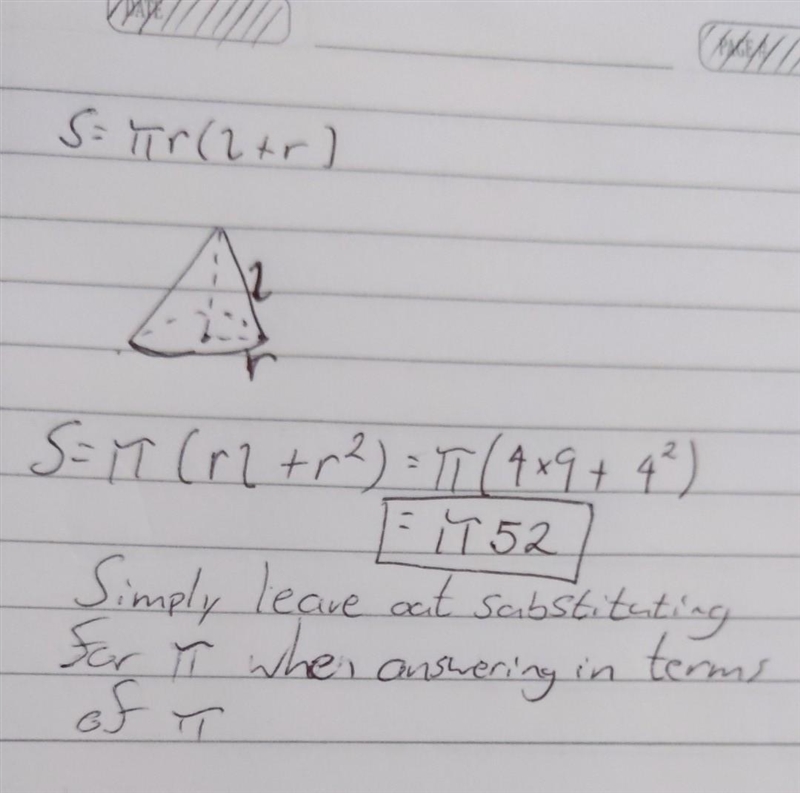 DATE
PAGE
S= πr(l+r)
l
r
S= π (rl +r²) = π(4×9+ 4²)
= π52
Simply leave out substituting
for π when answering in terms
of π